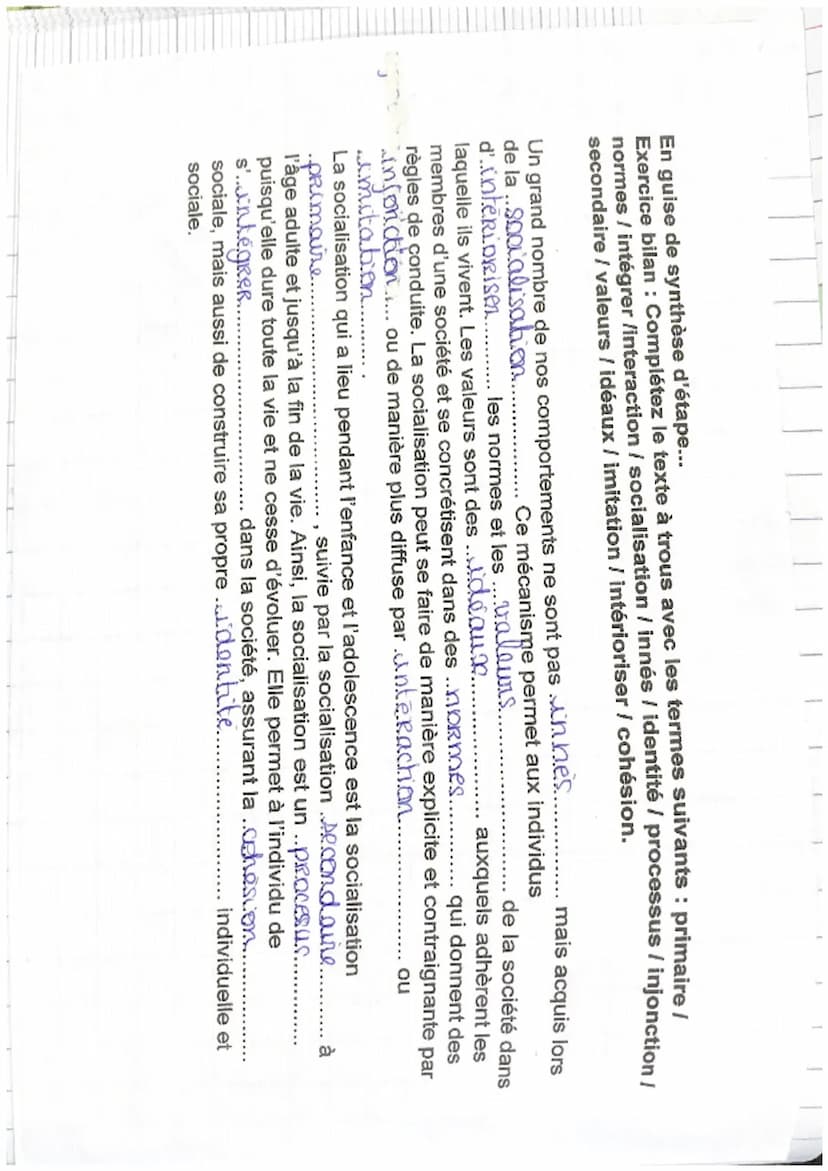 En guise de synthèse d'étape...
Exercice bilan : Complétez le texte à trous avec les termes suivants : primaire /
normes / intégrer /interaction / socialisation / innés / identité / processus / injonction /
secondaire / valeurs / idéaux / imitation / intérioriser / cohésion.
Un grand nombre de nos comportements ne sont pas innés mais acquis lors
de la socialisation Ce mécanisme permet aux individus
d'intérioriser les normes et les valeurs de la société dans
laquelle ils vivent. Les valeurs sont des idéaux auxquels adhèrent les
membres d'une société et se concrétisent dans des normes qui donnent des
règles de conduite. La socialisation peut se faire de manière explicite et contraignante par
injonction ou de manière plus diffuse par intéraction ou
imitation.
La socialisation qui a lieu pendant l'enfance et l'adolescence est la socialisation
primaire , suivie par la socialisation secondaire à
l'âge adulte et jusqu'à la fin de la vie. Ainsi, la socialisation est un procesus
puisqu'elle dure toute la vie et ne cesse d'évoluer. Elle permet à l'individu de
s'intégrer dans la société, assurant la cohésion
sociale, mais aussi de construire sa propre identité individuelle et
sociale.